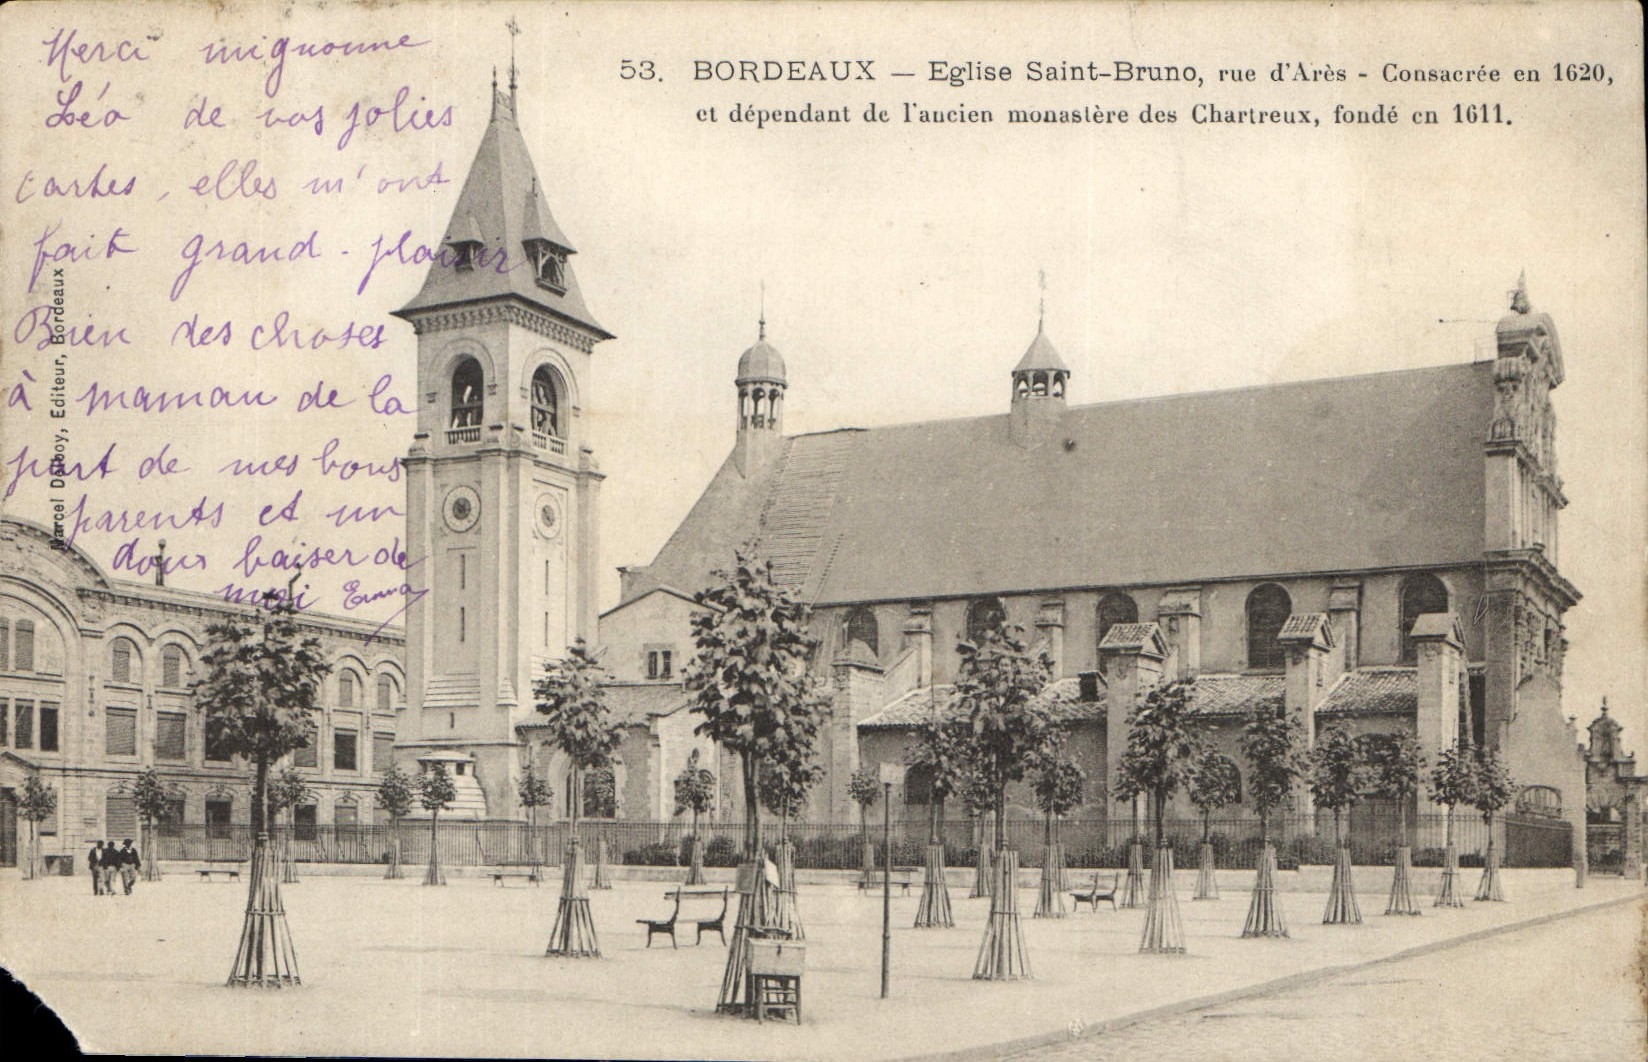 53. BORDEAUX — Eglise Saint-Bruno, rue d'Arès - Consacrée en 1620,
et dépendant de l'ancien monastère des Chartreux, fondé en 1611.
Merci mignonne
Léo de vos jolies
cartes, elles m'ont
fait grand-plaisir
Bien des choses
à maman de la
part de mes bons
parents et un
doux baiser de
moi Emma
Marcel Delboy, Editeur, Bordeaux